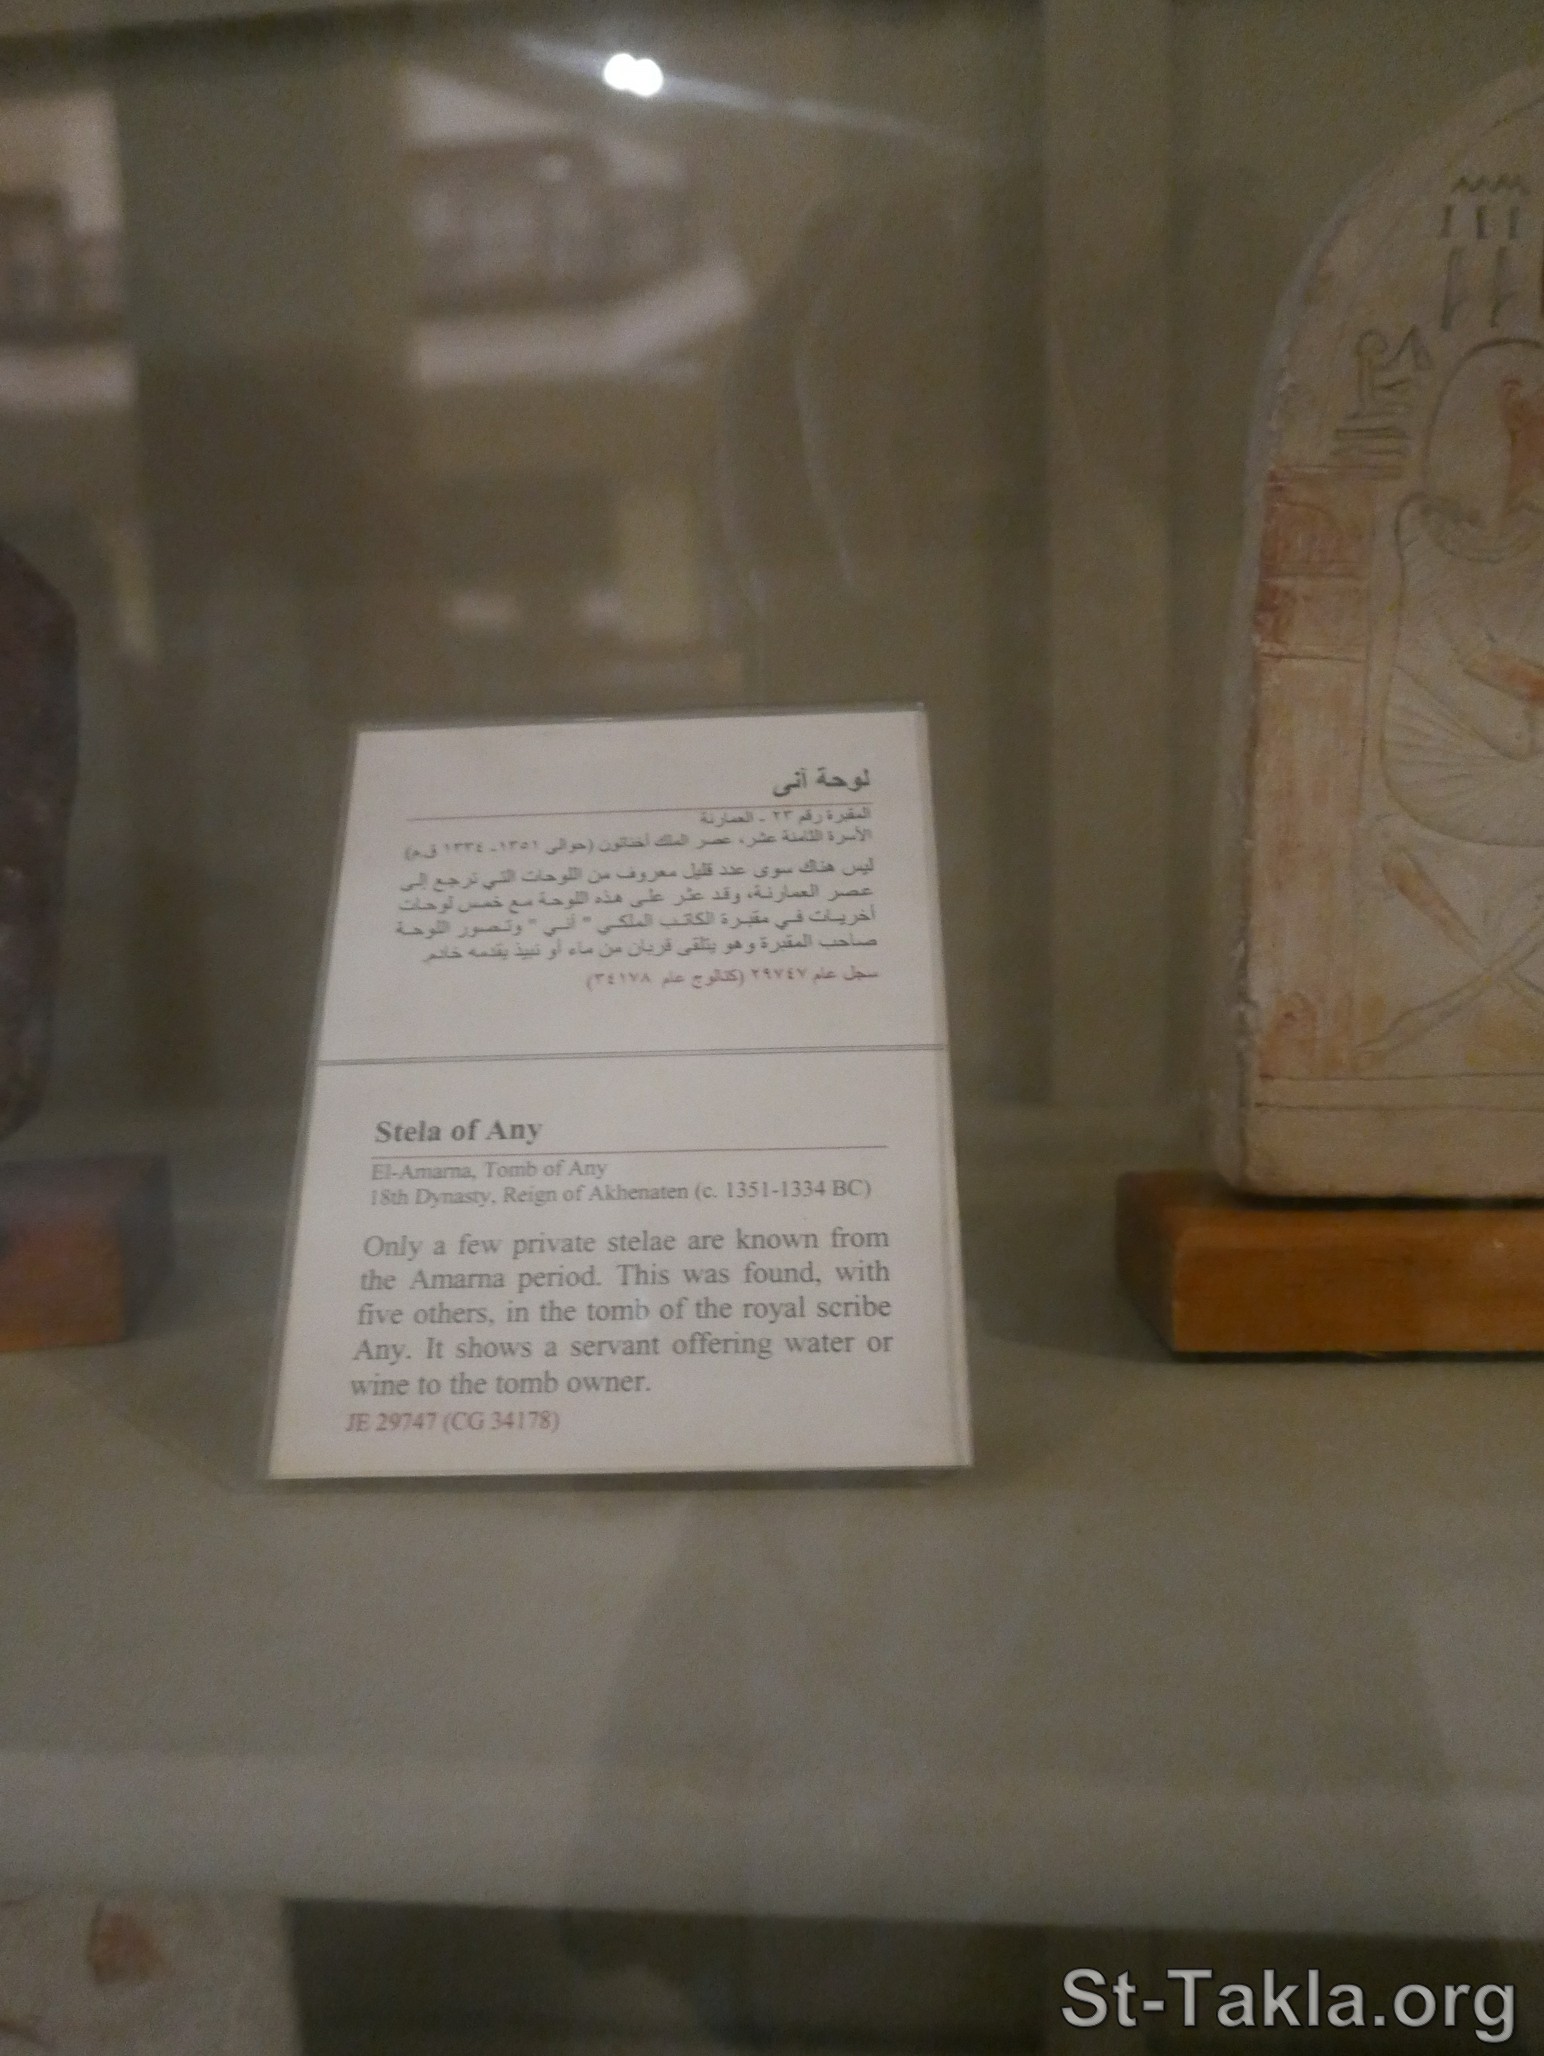 لوحة آنى
المقبرة رقم ٢٣ - العمارنة
الأسرة الثامنة عشر، عصر الملك أخناتون (حوالى ١٣٥١- ١٣٣٤ ق.م)
ليس هناك سوى عدد قليل معروف من اللوحات التي ترجع إلى
عصر العمارنة، وقد عثر على هذه اللوحة مع خمس لوحات
أخريات في مقبرة الكاتب الملكي " أني " وتصور اللوحة
صاحب المقبرة وهو يتلقى قربان من ماء أو نبيذ يقدمه خادم.
سجل عام ٢٩٧٤٧ (كتالوج عام ٣٤١٧٨)
Stela of Any
El-Amarna, Tomb of Any
18th Dynasty, Reign of Akhenaten (c. 1351-1334 BC)
Only a few private stelae are known from
the Amarna period. This was found, with
five others, in the tomb of the royal scribe
Any. It shows a servant offering water or
wine to the tomb owner.
JE 29747 (CG 34178)
St-Takla.org